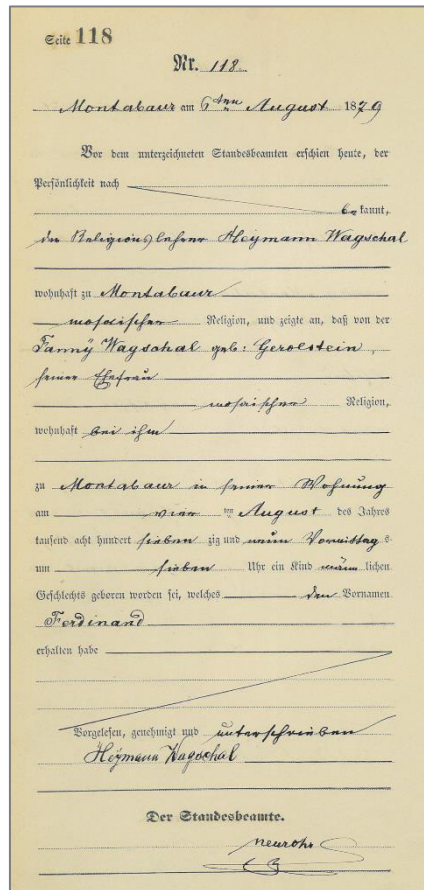 Seite 118
Nr. 118.
Montabaur am 6ten August 1879
Vor dem unterzeichneten Standesbeamten erschien heute, der
Persönlichkeit nach
be kannt,
der Religionslehrer Heymann Wagschal
wohnhaft zu Montabaur
mosaischer Religion, und zeigte an, daß von der
Fanny Wagschal geb: Gerolstein,
seiner Ehefrau
mosaischer Religion,
wohnhaft bei ihm
zu Montabaur in seiner Wohnung
am vier ten August des Jahres
tausend acht hundert sieben zig und neun Vormittag s
um sieben Uhr ein Kind männ lichen
Geschlechts geboren worden sei, welches den Vornamen
Ferdinand
erhalten habe
Vorgelesen, genehmigt und unterschrieben
Heymann Wagschal
Der Standesbeamte.
Neuroth